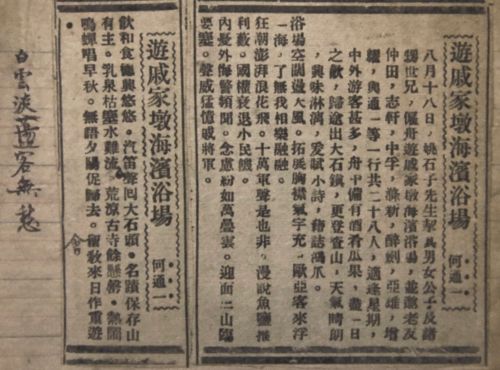 遊戚家墩海濱浴場
何通一
八月十八日,姚石子先生挈其男女公子及諸
甥世兄,偃舟遊戚家墩海濱浴場,並邀老友
仲田,志軒,中孚,滌新,醉劍,亞雄,增
韞,與通一等一行共二十八人,適逢星期,
中外游客甚多,舟中備有酒肴瓜果,盡一日
之歡,歸途出大石鎮,更登查山,天氣晴朗
,興味淋漓,爰賦小詩,藉誌鴻爪。
浴場空闊蕩天風。拓展胸襟氣宇充。歐亞客來浮
一海,了無我相樂融融。
狂潮澎湃浪花飛。十萬軍聲是也非。漫說魚鹽擁
利藪。國權衰退小民饑。
內憂外侮警頻聞。念慮紛如萬疊雲。迎面二山臨
要塞。聲威猛憶戚將軍。
遊戚家墩海濱浴場
何通一
飲和食德興悠悠。汽笛聲囘大石頭。名蹟保存山
有主。乳泉枯塞水難流。荒涼古寺餘懸磬。熱鬧
鳴蟬唱早秋。無語夕陽促歸去。留敎來日作重遊
白雲淡蕩客無愁